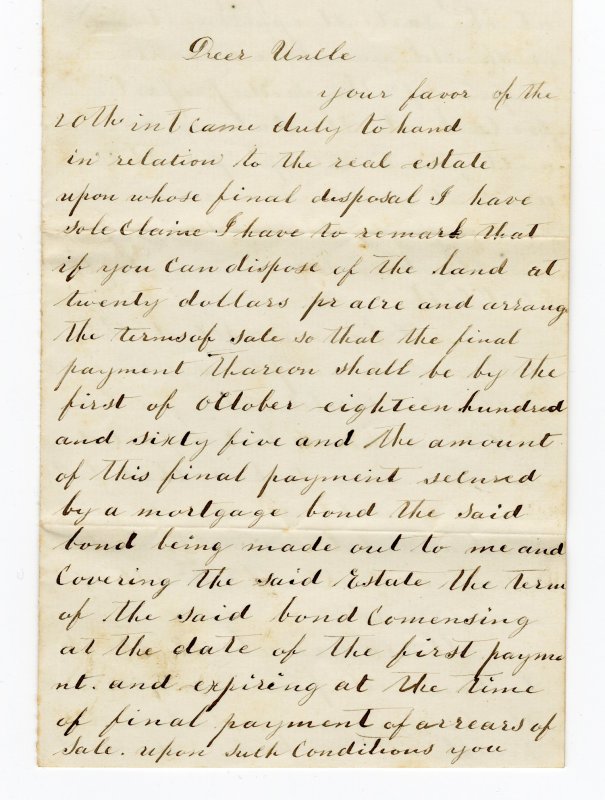 Deer Uncle
your favor of the
20th int came duly to hand
in relation to the real estate
upon whose final disposal I have
sole Claime I have to remark that
if you can dispose of the land at
twenty dollars pr acre and arrang
the terms of sale so that the final
payment thareon shall be by the
first of October eighteen hundred
and sixty five and the amount
of this final payment secured
by a mortgage bond the said
bond being made out to me and
Covering the said Estate the term
of the said bond Comensing
at the date of the first payme
nt. and expiring at the time
of final payment of arrears of
sale. upon such Conditions you